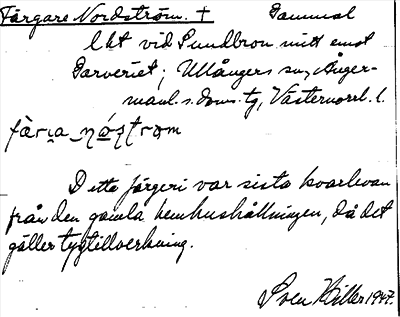 Färgare Nordström. † Gammal
lht vid Sundbron mitt emot
Garveriet; Ullångers sn, Ånger-
manl. s. doms. tg, Västernorrl. l.
Detta färgeri var sista kvarlevan
från den gamla hemhushållningen, då det
gäller tygtillverkning.
Sven Hiller 1947.